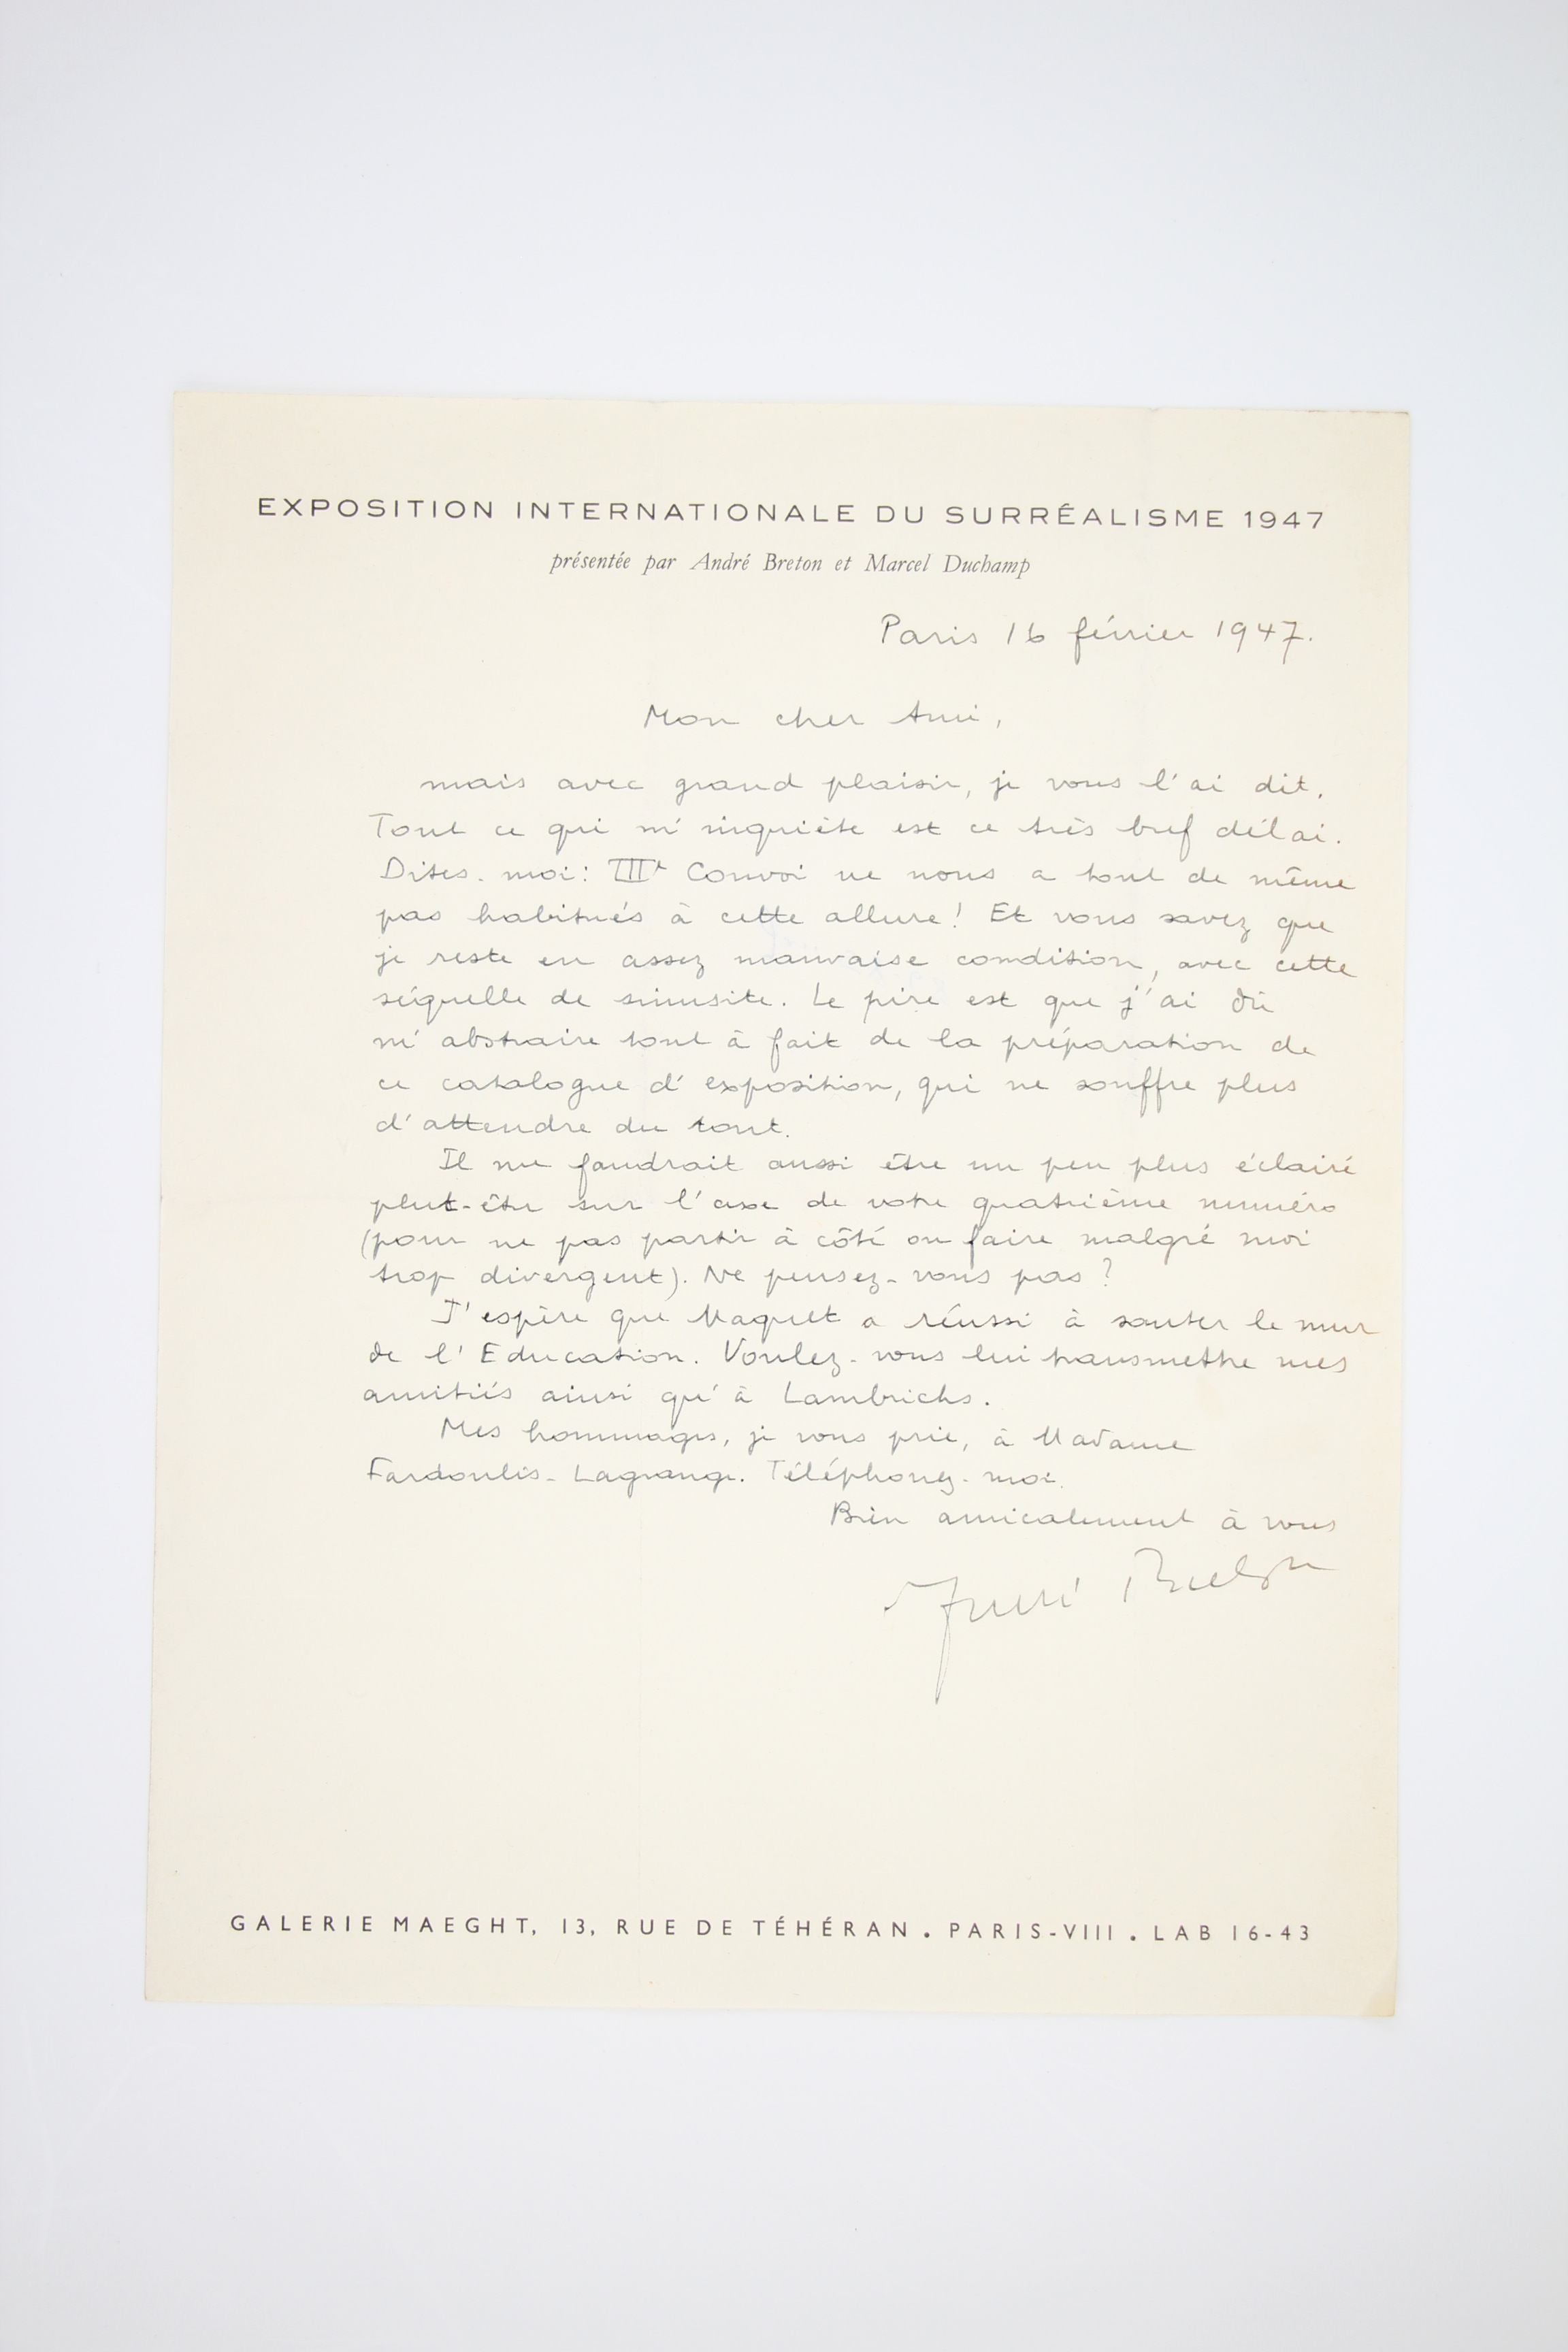 EXPOSITION INTERNATIONALE DU SURRÉALISME 1947
présentée par André Breton et Marcel Duchamp
Paris 16 février 1947.
Mon cher Ami,
mais avec grand plaisir, je vous l'ai dit.
Tout ce qui m'inquiète est ce très bref délai.
Dites-moi : IIIe Convoi ne nous a tout de même
pas habitués à cette allure ! Et vous savez que
je reste en assez mauvaise condition, avec cette
séquelle de sinusite. Le pire est que j'ai dû
m'abstraire tout à fait de la préparation de
ce catalogue d'exposition, qui ne souffre plus
d'attendre du tout.
Il me faudrait aussi être un peu plus éclairé
peut-être sur l'axe de votre quatrième numéro
(pour ne pas partir à côté ou faire malgré moi
trop divergent). Ne pensez-vous pas ?
J'espère que Maquet a réussi à sauter le mur
de l'Education. Voulez-vous lui transmettre mes
amitiés ainsi qu'à Lambrichs.
Mes hommages, je vous prie, à Madame
Fardoulis-Lagrange. Téléphonez-moi.
Bien amicalement à vous
André Breton
GALERIE MAEGHT, 13, RUE DE TÉHÉRAN . PARIS-VIII . LAB 16-43